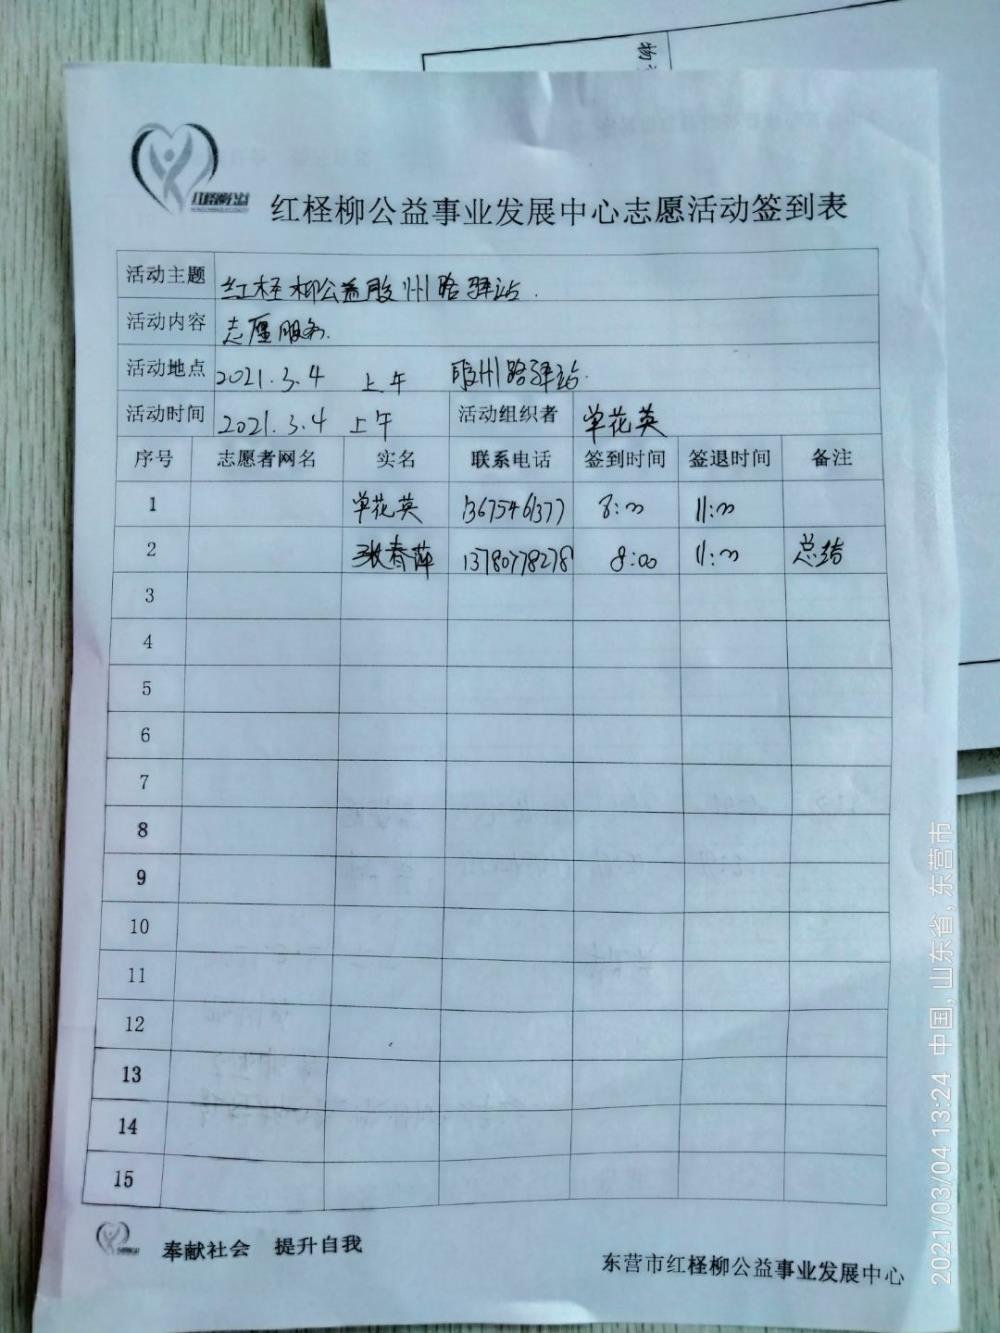 杨
红柽柳公益
红柽柳公益事业发展中心志愿活动签到表
活动主题 红柽柳公益胶州路驿站.
活动内容 志愿服务.
活动地点 2021.3.4 上午 胶州路驿站.
活动时间 2021.3.4 上午 活动组织者 单花英
序号 志愿者网名 实名 联系电话 签到时间 签退时间 备注
1 单花英 13675461377 8:00 11:00
2 张春萍 13780778278 8:00 11:00 总结
3
4
5
6
7
8
9
10
11
12
13
14
15
奉献社会 提升自我
东营市红柽柳公益事业发展中心
2021/03/04 13:24 中国, 山东省, 东营市